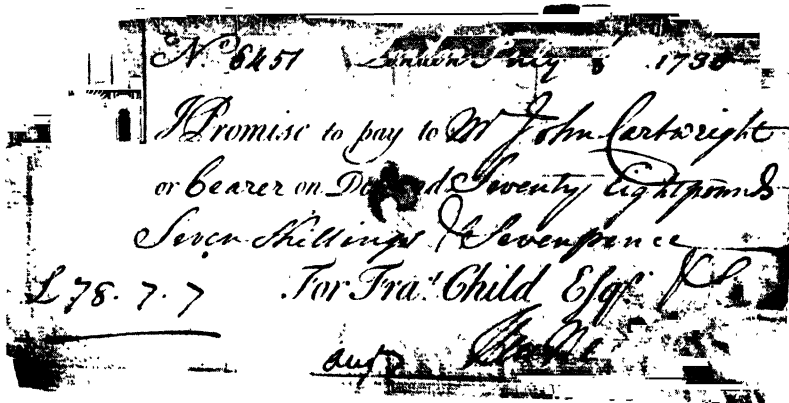 No 6451 London July 8 1730
I Promise to pay to Mr John Cartwright
or bearer on Demand Seventy Eight pounds
Seven Shillings & Sevenpence
£ 78. 7. 7 For Fras. Child Esqr. & Co